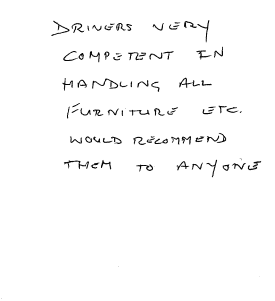 DRIVERS VERY
COMPETENT IN
HANDLING ALL
FURNITURE ETC.
WOULD RECOMMEND
THEM TO ANYONE